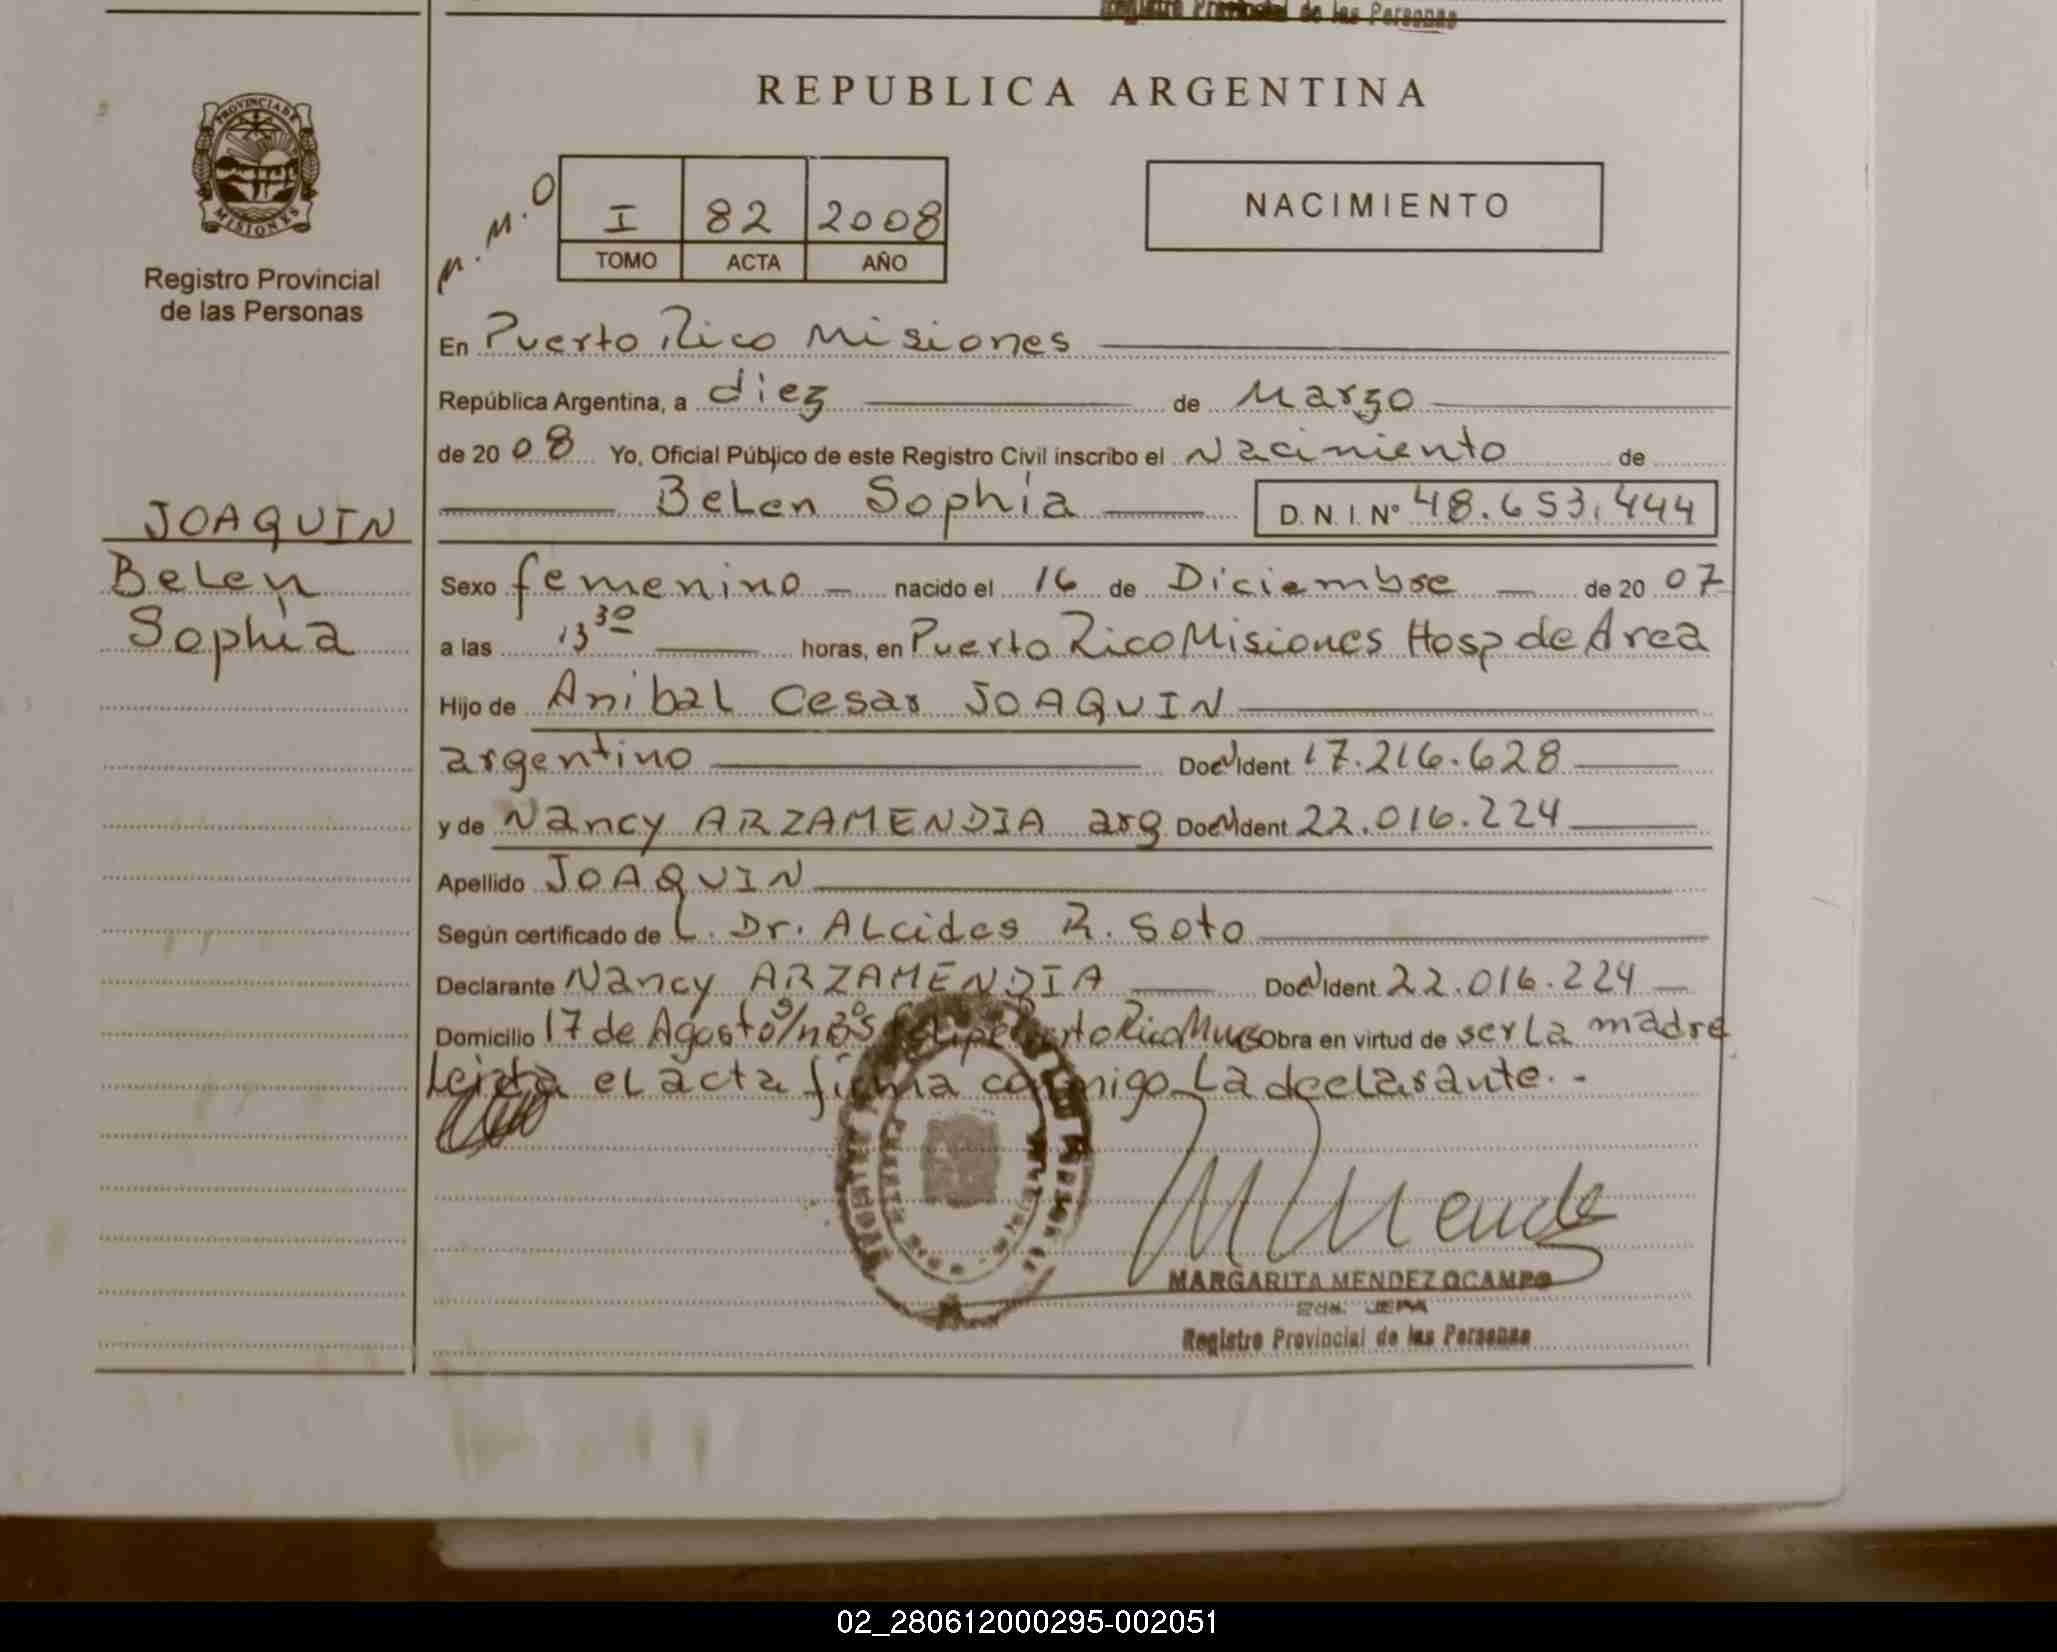 Registro Provincial de las Personas
REPUBLICA ARGENTINA
PROVINCIA DE
MISIONES
Registro Provincial
de las Personas
I 82 2008
TOMO ACTA AÑO
NACIMIENTO
En Puerto Rico Misiones
República Argentina, a diez de Marzo
de 2008 Yo, Oficial Público de este Registro Civil inscribo el Nacimiento de
Belen Sophia D. N. I. N° 48.653.444
JOAQUIN
Belen
Sophia
Sexo femenino nacido el 16 de Diciembre de 2007
a las 13 30 horas, en Puerto Rico Misiones Hosp de Area
Hijo de Anibal Cesar JOAQUIN
argentino Doc Ident 17.216.628
y de Nancy ARZAMENDIA arg Doc Ident 22.016.224
Apellido JOAQUIN
Según certificado de L. Dr. Alcides R. Soto
Declarante Nancy ARZAMENDIA Doc Ident 22.016.224
Domicilio 17 de Agosto s/n Bº Rico Obra en virtud de ser la madre
el acta firma conmigo La declarante.-
MARGARITA MENDEZ OCAMPO
Registro Provincial de las Personas
02_280612000295-002051